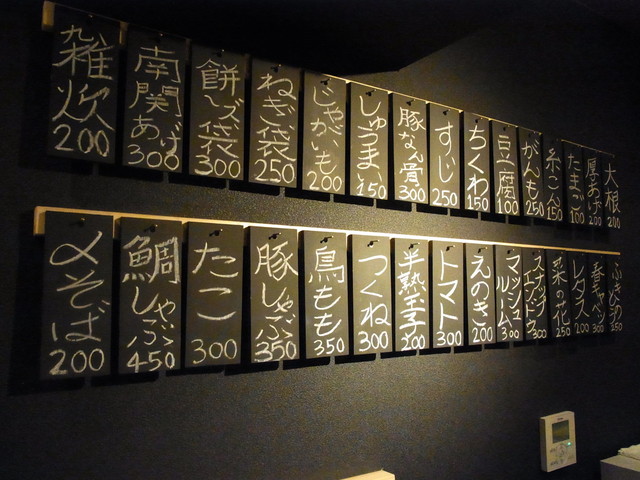 大根
200
厚あげ
200
たまご
100
糸こん
150
がんも
250
豆腐
100
ちくわ
150
すじ
250
豚なん骨
300
しゅうまい
150
じゃがいも
200
ねぎ袋
250
餅チーズ袋
300
南関あげ
300
雑炊
200
ふきのとう
250
春キャベツ
300
レタス
200
菜の花
250
スナップエンドウ
300
マッシュルーム
300
えのき
200
トマト
300
半熟玉子
200
つくね
300
鳥もも
350
豚しゃぶ
350
たこ
300
鯛しゃぶ
450
〆そば
200